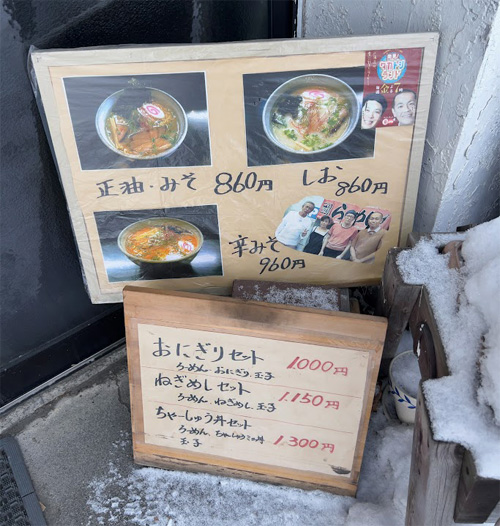 正油・みそ 860円
しお 860円
辛みそ 960円
らーめん
おにぎりセット 1.000円
らーめん、おにぎり、玉子
ねぎめしセット 1.150円
らーめん、ねぎめし、玉子
ちゃーしゅう丼セット 1,300円
らーめん、ちゃーしゅうミニ丼
玉子